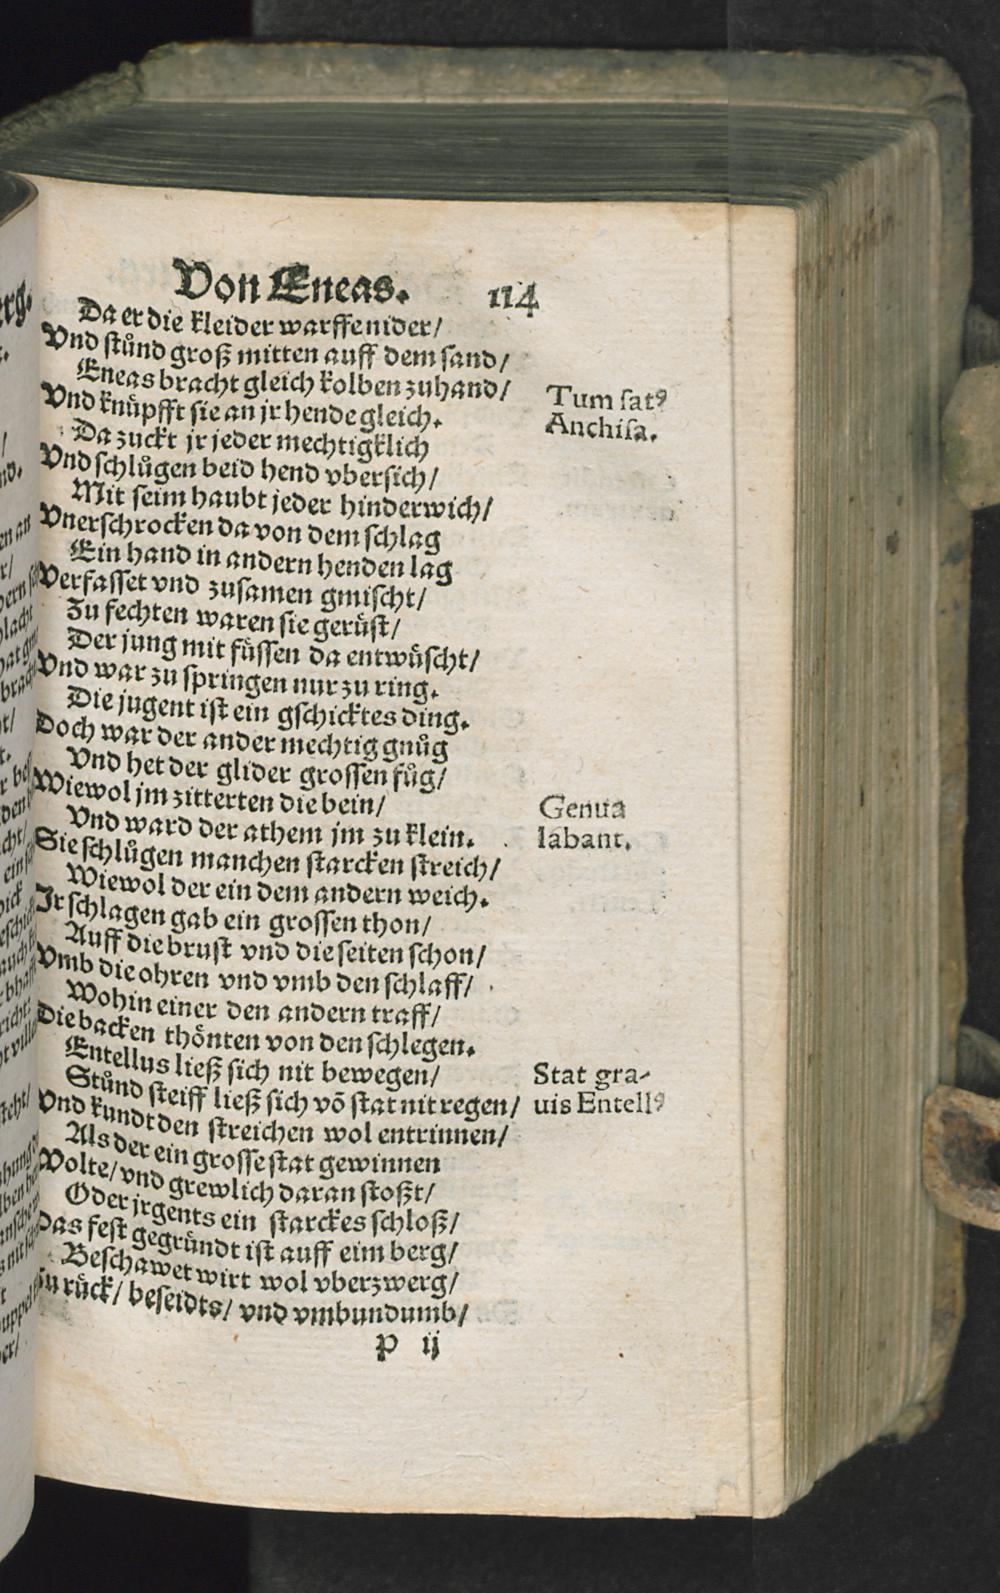 Von Eneas. 114
Da er die kleider warffe nider/
Vnd stůnd groß mitten auff dem sand/
Eneas bracht gleich kolben zuhand/
Vnd knüpfft sie an jr hende gleich.
Da zuckt jr jeder mechtigklich
Vnd schlůgen beid hend vbersich/
Mit seim haubt jeder hinderwich/
Vnerschrocken da von dem schlag
Ein hand in andern henden lag
Verfasset vnd zusamen gmischt/
Zu fechten waren sie gerüst/
Der jung mit füssen da entwüscht/
Vnd war zu springen nur zu ring.
Die jugent ist ein gschicktes ding.
Doch war der ander mechtig gnůg
Vnd het der glider grossen fůg/
Wiewol jm zitterten die bein/
Vnd ward der athem jm zu klein.
Sie schlůgen manchen starcken streich/
Wiewol der ein dem andern weich.
Ir schlagen gab ein grossen thon/
Auff die brust vnd die seiten schon/
Vmb die ohren vnd vmb den schlaff/
Wohin einer den andern traff/
Die backen thönten von den schlegen.
Entellus ließ sich nit bewegen/
Stůnd steiff ließ sich võ stat nit regen/
Vnd kundt den streichen wol entrinnen/
Als der ein grosse stat gewinnen
Wolte/ vnd grewlich daran stoßt/
Oder jrgents ein starckes schloß/
Das fest gegründt ist auff eim berg/
Beschawet wirt wol vberzwerg/
Zu rück/ beseidts/ vnd vmbundumb/
P ij
Tum satꝰ
Anchisa.
Genua
labant.
Stat gra-
uis Entellꝰ